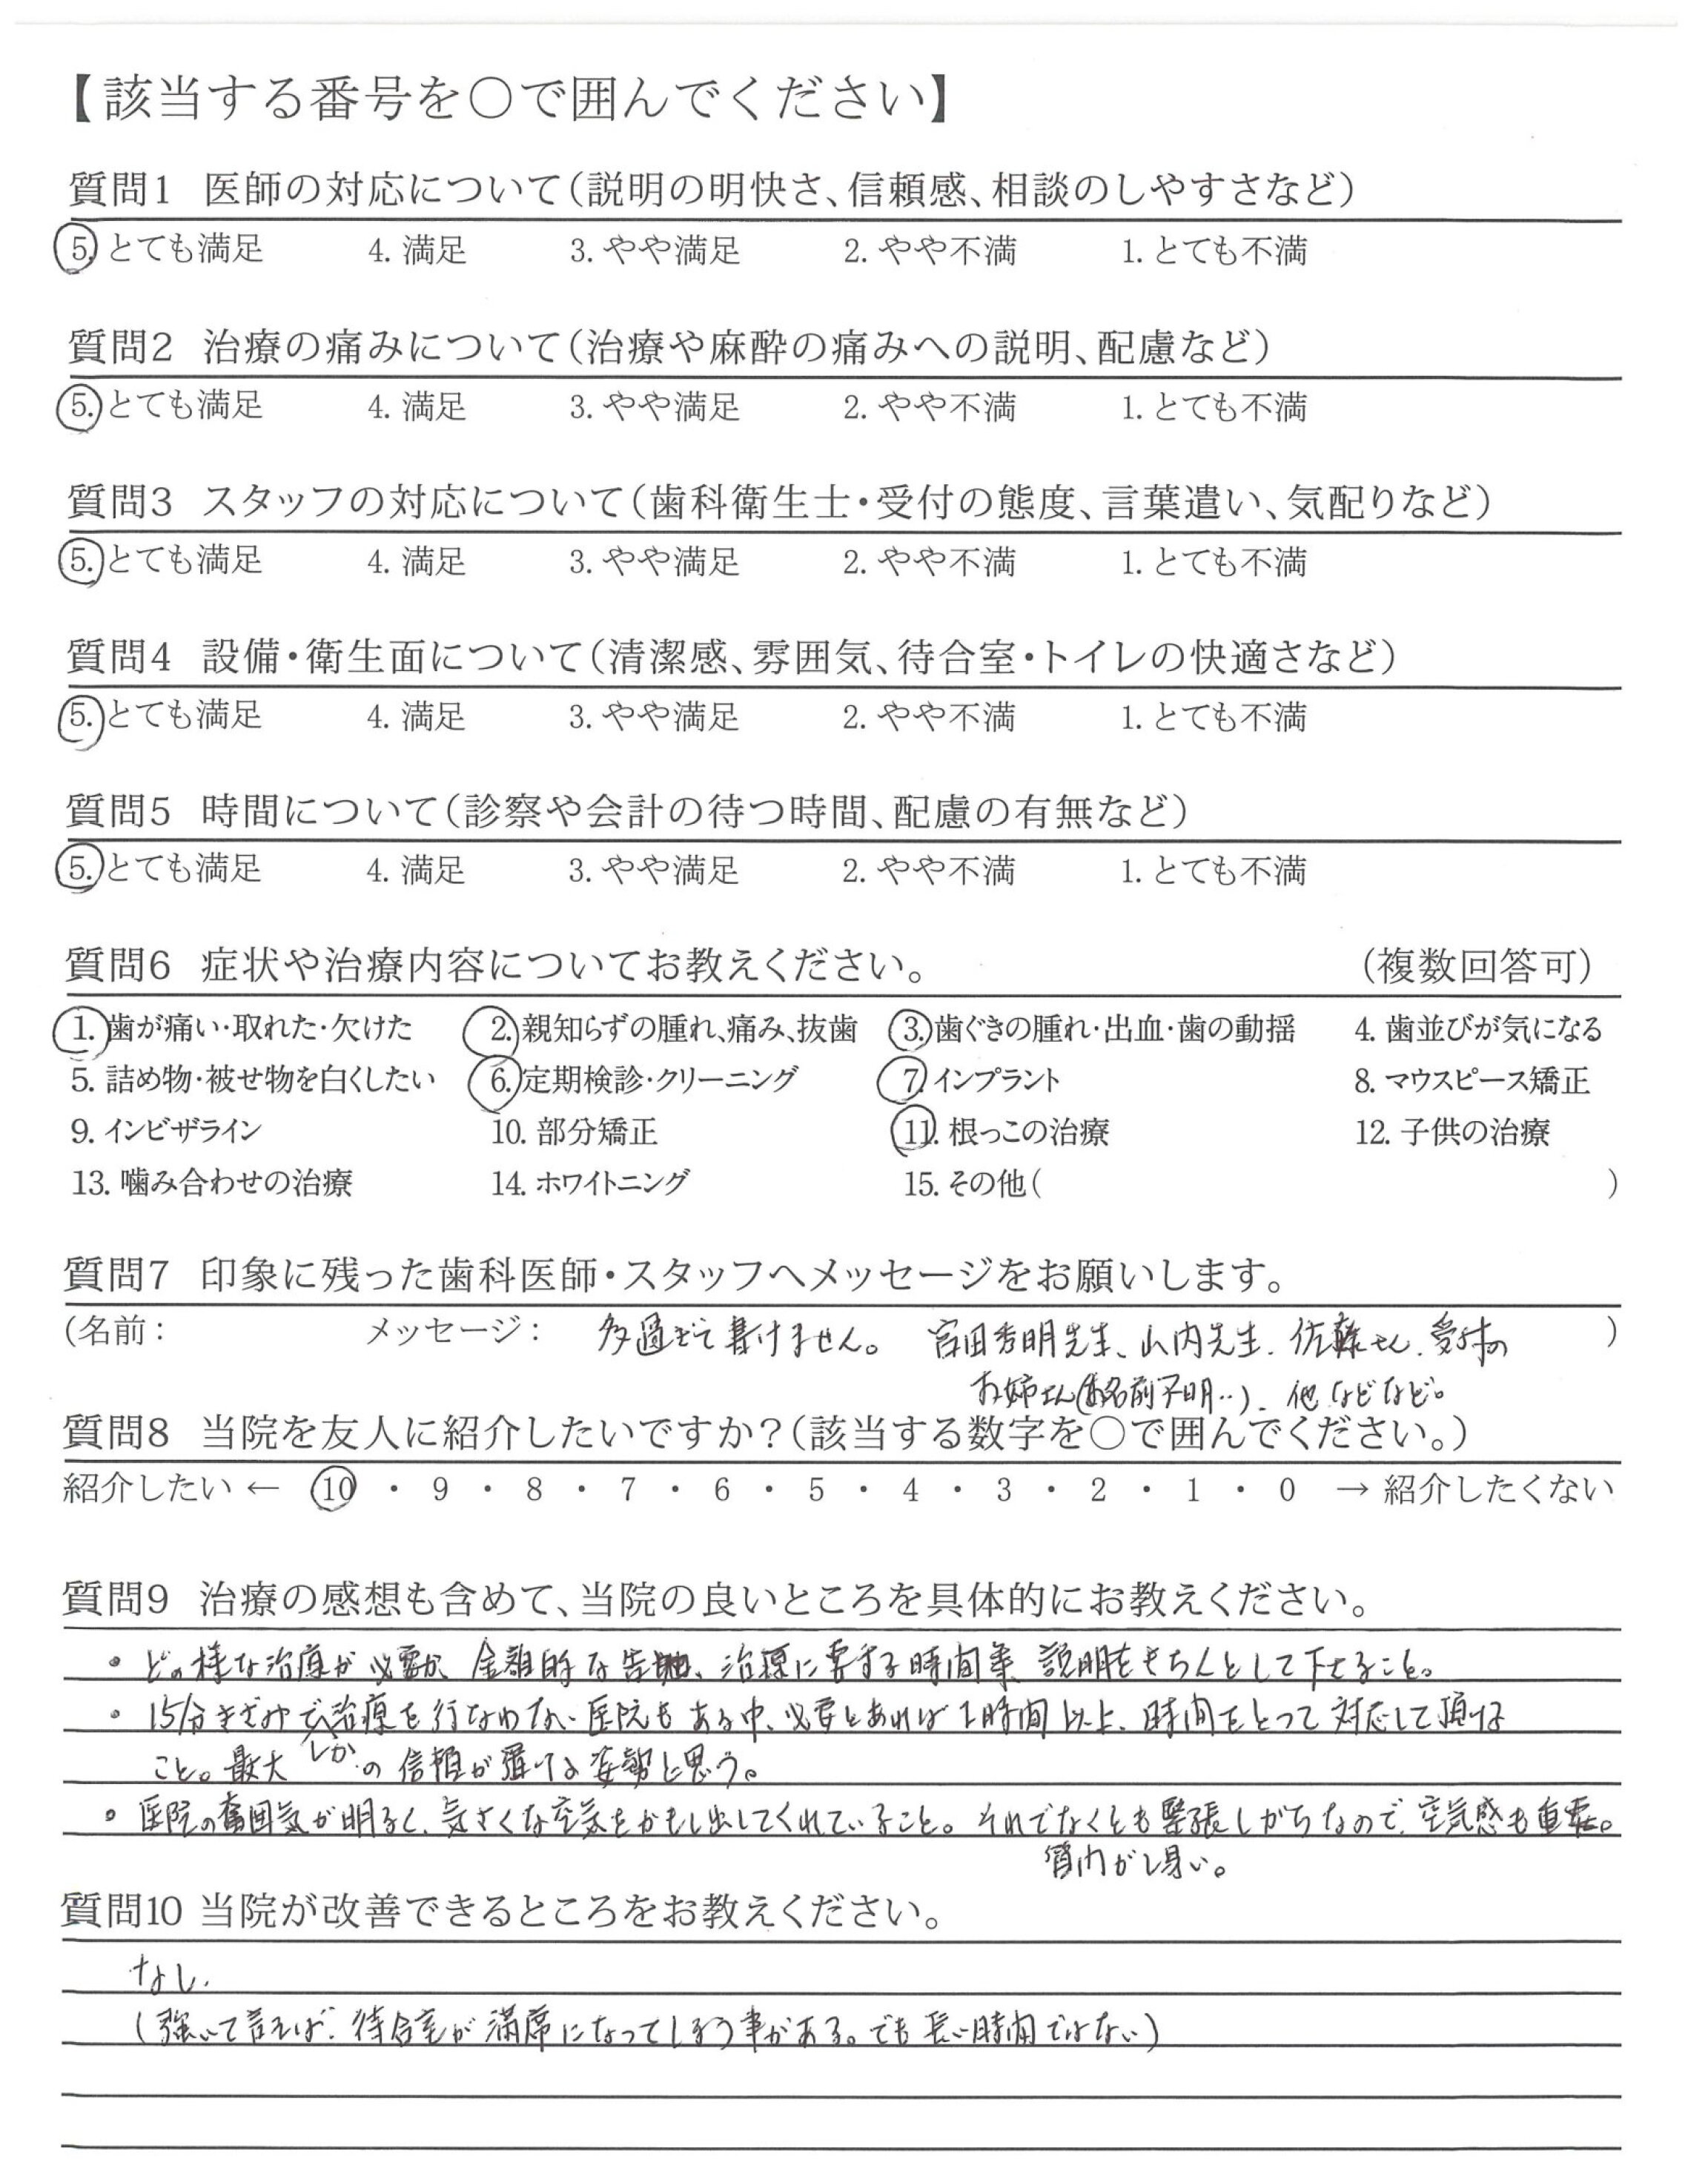 【該当する番号を○で囲んでください】
質問1 医師の対応について(説明の明快さ、信頼感、相談のしやすさなど)
5. とても満足 4. 満足 3. やや満足 2. やや不満 1. とても不満
質問2 治療の痛みについて(治療や麻酔の痛みへの説明、配慮など)
5. とても満足 4. 満足 3. やや満足 2. やや不満 1. とても不満
質問3 スタッフの対応について(歯科衛生士・受付の態度、言葉遣い、気配りなど)
5. とても満足 4. 満足 3. やや満足 2. やや不満 1. とても不満
質問4 設備・衛生面について(清潔感、雰囲気、待合室・トイレの快適さなど)
5. とても満足 4. 満足 3. やや満足 2. やや不満 1. とても不満
質問5 時間について(診察や会計の待つ時間、配慮の有無など)
5. とても満足 4. 満足 3. やや満足 2. やや不満 1. とても不満
質問6 症状や治療内容についてお教えください。 (複数回答可)
1. 歯が痛い・取れた・欠けた 2. 親知らずの腫れ、痛み、抜歯 3. 歯ぐきの腫れ・出血・歯の動揺 4. 歯並びが気になる
5. 詰め物・被せ物を白くしたい 6. 定期検診・クリーニング 7. インプラント 8. マウスピース矯正
9. インビザライン 10. 部分矯正 11. 根っこの治療 12. 子供の治療
13. 噛み合わせの治療 14. ホワイトニング 15. その他( )
質問7 印象に残った歯科医師・スタッフへメッセージをお願いします。
(名前: メッセージ: 多過ぎて書けません。 宮田秀明先生、山内先生、佐藤さん、受付の )
お姉さん(お名前不明‥)、他などなど。
質問8 当院を友人に紹介したいですか?(該当する数字を○で囲んでください。)
紹介したい ← 10 ・ 9 ・ 8 ・ 7 ・ 6 ・ 5 ・ 4 ・ 3 ・ 2 ・ 1 ・ 0 → 紹介したくない
質問9 治療の感想も含めて、当院の良いところを具体的にお教えください。
・どの様な治療が必要か、金額的な 治療に要する時間等、説明をきちんとして下さること。
・15分きざみでしか治療を行なわない医院もある中、必要とあれば1時間以上、時間をとって対応して頂ける
こと。最大の信頼が置ける姿勢と思う。
・医院の雰囲気が明るく、気さくな空気をかもし出してくれていること。それでなくとも緊張しがちなので、空気感も重要。
質問がし易い。
質問10 当院が改善できるところをお教えください。
なし.
(強いて言えば、待合室が満席になってしまう事がある。でも長い時間ではない)